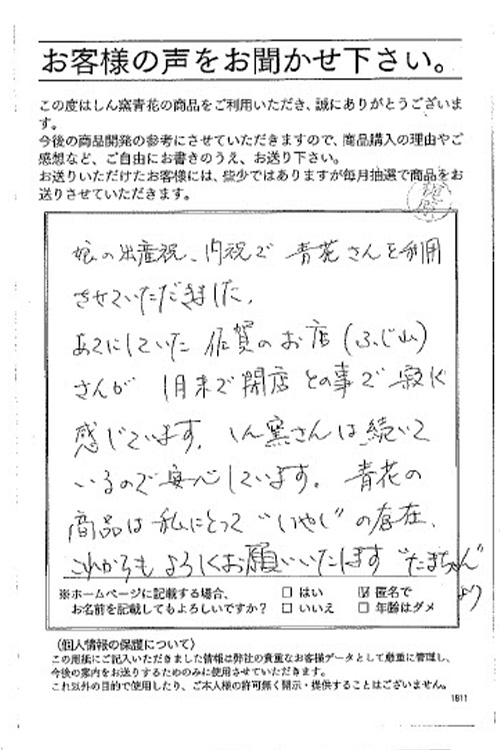 お客様の声をお聞かせ下さい。
この度はしん窯青花の商品をご利用いただき、誠にありがとうございま
す。
今後の商品開発の参考にさせていただきますので、商品購入の理由やご
感想など、ご自由にお書きのうえ、お送り下さい。
お送りいただけたお客様には、些少ではありますが毎月抽選で商品をお
送りさせていただきます。
娘の出産祝、内祝で 青花さんを利用
させていただきました。
あてにしていた 佐賀のお店(ふじ山)
さんが 1月末で閉店との事で寂く
感じています。しん窯さんは続いて
いるので安心しています。青花の
商品は私にとって“いやし”の存在、
これからもよろしくお願いいたします “たまちゃん”
より
※ホームページに記載する場合、 □ はい ☑ 匿名で
お名前を記載してもよろしいですか? □ いいえ □ 年齢はダメ
〈個人情報の保護について〉
この用紙にご記入いただきました情報は弊社の貴重なお客様データとして厳重に管理し、
今後の案内をお送りするためのみに使用させていただきます。
これ以外の目的で使用したり、ご本人様の許可無く開示・提供することはございません。
1811